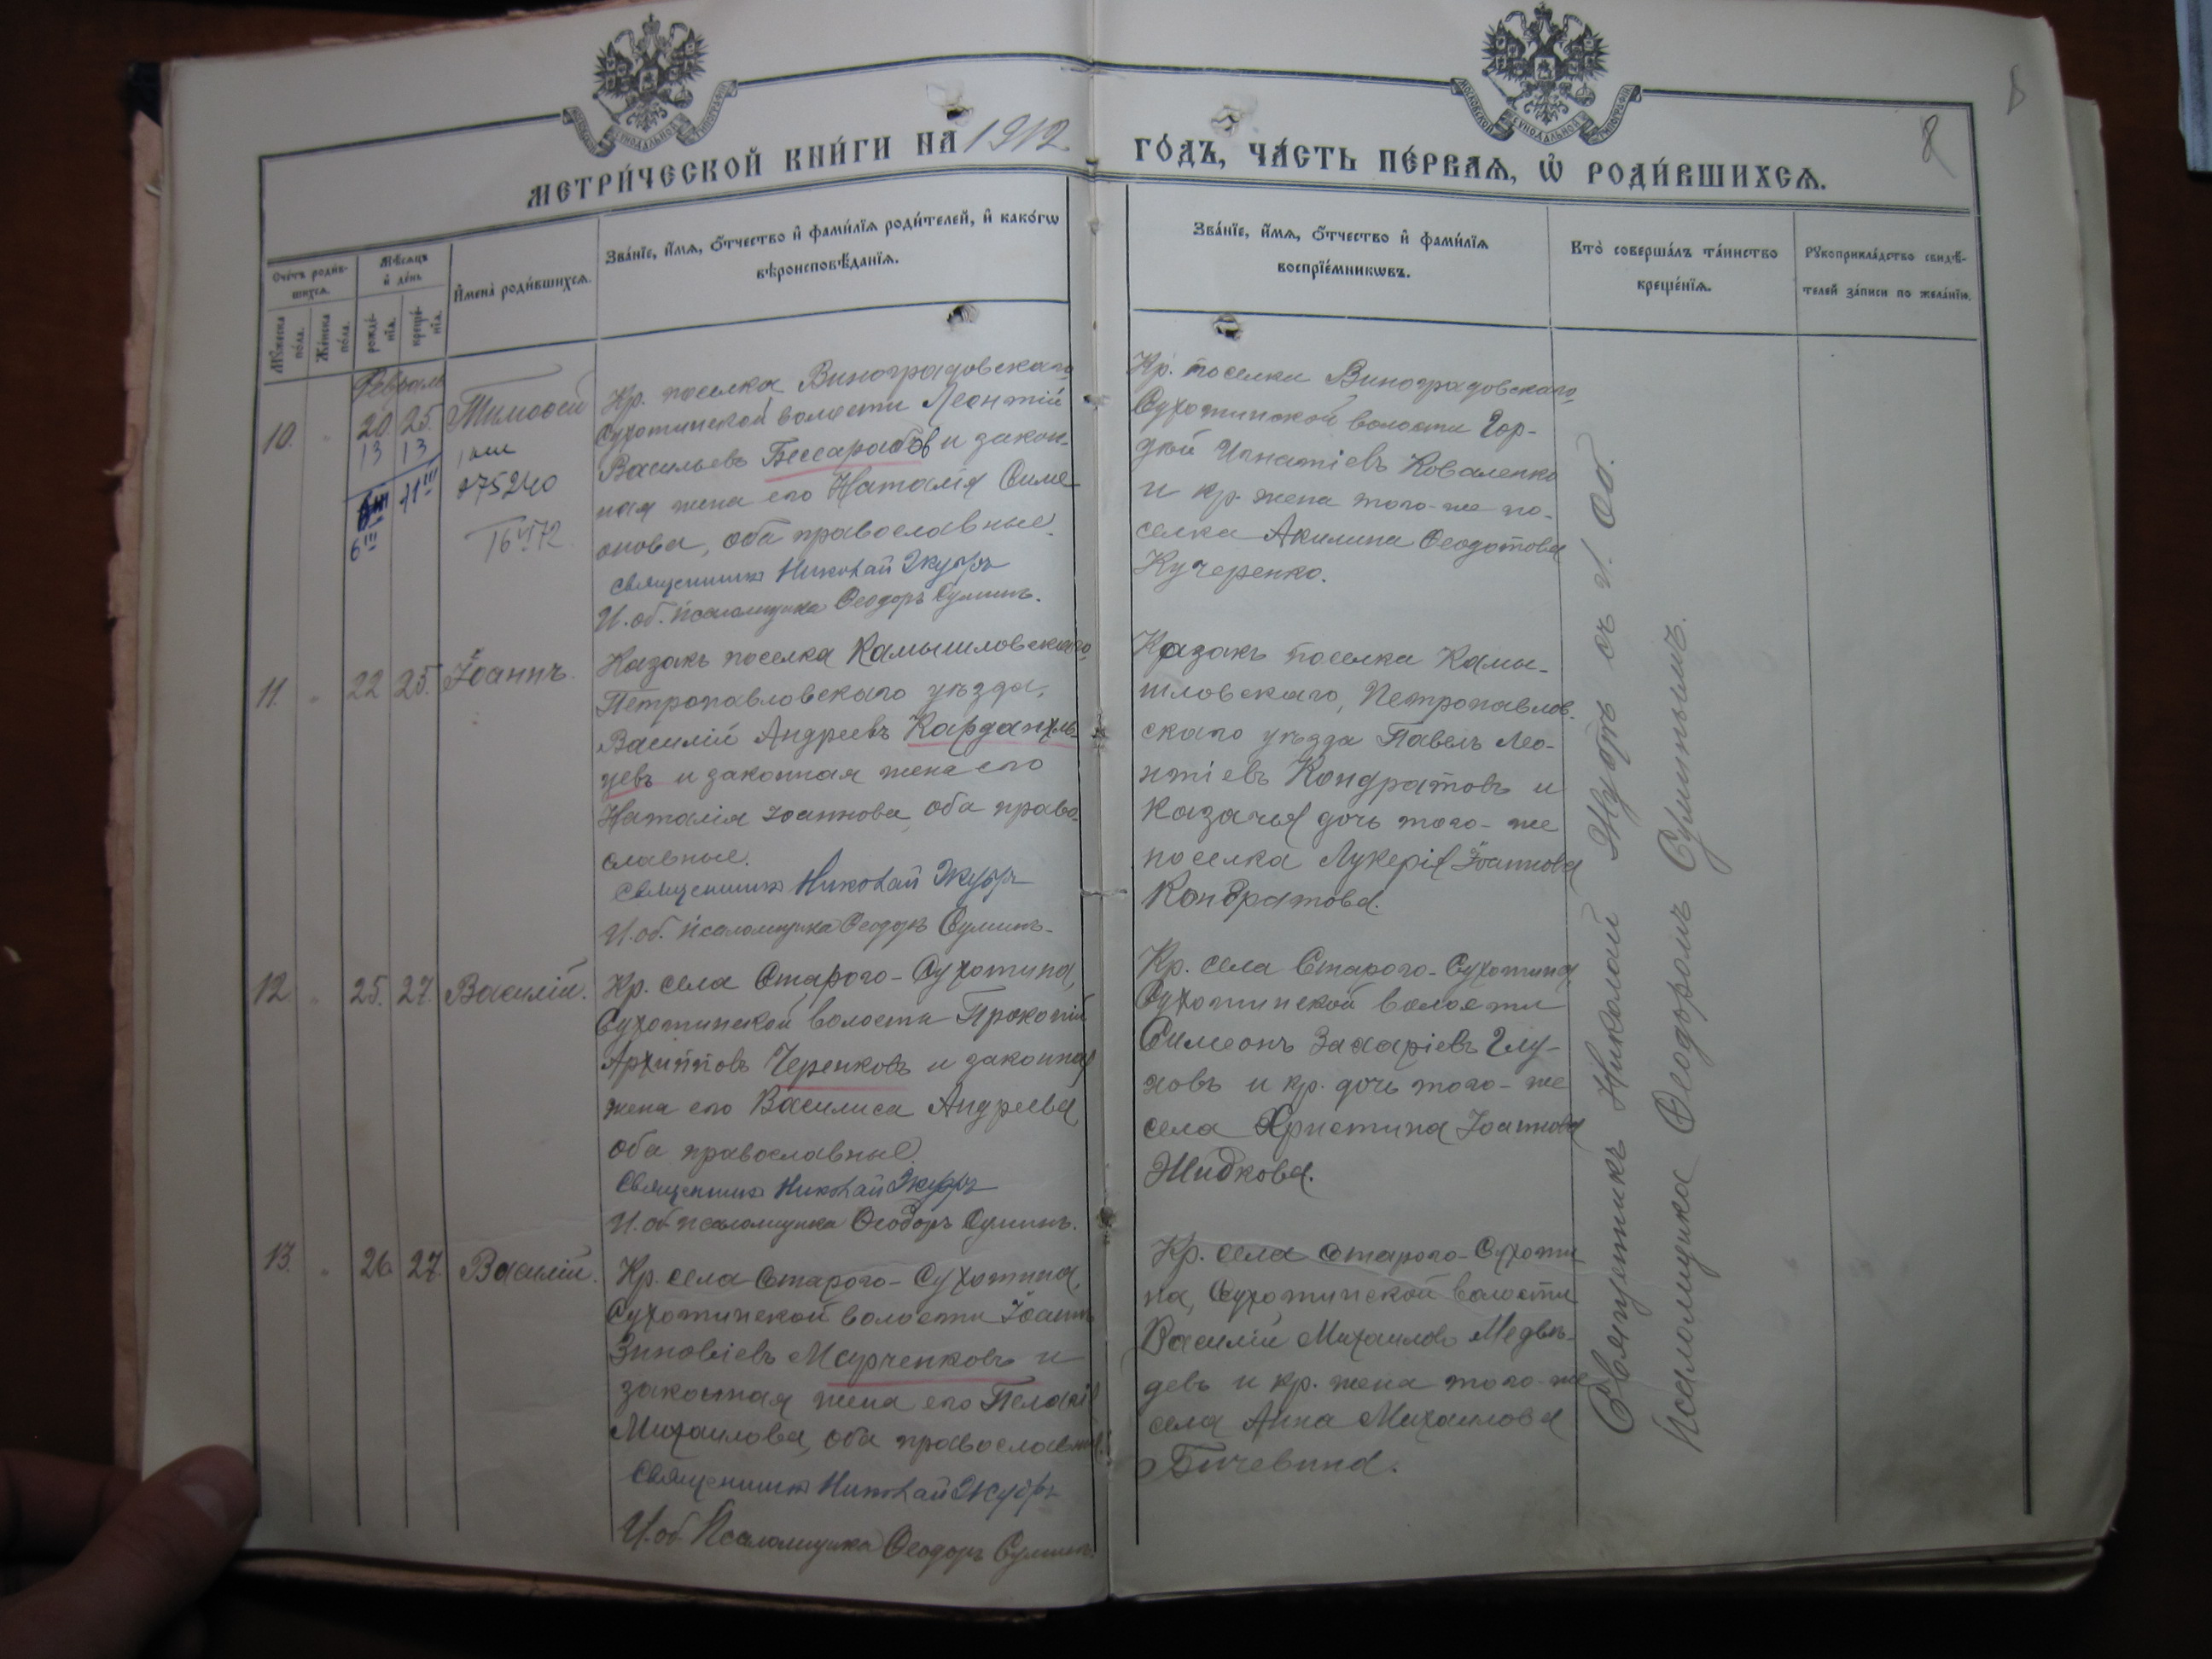 МОСКОВСКОЙ СУНОДАЛЬНОЙ ТИПОГРАФІИ
МОСКОВСКОЙ СУНОДАЛЬНОЙ ТИПОГРАФІИ
8
МЕТРИ́ЧЕСКОЙ КНИ́ГИ НА 1912
ГО́ДЪ, ЧА́СТЬ ПЕ́РВАѦ, Ѡ҆ РОДИ́ВШИХСѦ.
Сче́тъ роди́в-
шихсѧ.
Мѣ́сѧцъ
и҆ де́нь
И҆мена̀ роди́вшихсѧ.
Зва́нїе, и҆́мѧ, ѻ҆́тчество и҆ фами́лїѧ роди́телей, и҆ како́гѡ
вѣроисповѣ́данїѧ.
Мꙋ́жеска
по́ла.
Же́нска
по́ла.
рожде́-
нїѧ.
креще́-
нїѧ.
Зва́нїе, и҆́мѧ, ѻ҆́тчество и҆ фами́лїѧ
воспрїе́мникѡвъ.
Кто̀ соверша́лъ та́инство
креще́нїѧ.
Рꙋкоприкла́дство свидѣ́-
телей за́писи по жела́нїю.
Февраль
10. " 20. 25. Тимоѳей
13 13
275240
6 III
Кр. поселка Виноградовскаго,
Сухотинской волости Леонтій
Васильевъ Бессарабовъ и закон-
ная жена его Наталія Симе
онова, оба православные.
Священникъ Николай Жубръ
И. об. псаломщика Ѳеодоръ Сулинъ.
Кр. поселка Виноградовскаго,
Сухотинской волости Гор-
дѣй Игнатіевъ Коваленко
и кр. жена того-же по-
селка Акилина Ѳеодотова
Кучеренко.
11. " 22 25. Іоаннъ.
Казакъ поселка Камышловскаго,
Петропавловскаго уѣзда,
Василій Андреевъ Карданхль-
цевъ и законная жена его
Наталія Іоаннова, оба право-
славные.
Священникъ Николай Жубръ
И. об. псаломщика Ѳеодоръ Сулинъ.
Казакъ поселка Камы-
шловскаго, Петропавлов-
скаго уѣзда Павелъ Лео-
нтіевъ Кондратовъ и
казачья дочь того-же
поселка Лукерія Іоаннова
Кондратова.
12 " 25. 27. Василій.
Кр. села Старого-Сухотина,
Сухотинской волости Прокопій
Архипповъ Черенковъ и законная
жена его Василиса Андреева
оба православные.
Священникъ Николай Жубръ
И. об. псаломщика Ѳеодоръ Сулинъ.
Кр. села Старого-Сухотина,
Сухотинской волости
Симеонъ Захаріевъ Глу-
ховъ и кр. дочь того-же
села Христина Іоаннова
Жидкова.
13. " 26 27. Василій.
Кр. села Старого-Сухотина,
Сухотинской волости Іоаннъ
Зиновіевъ Марченковъ и
законная жена его Пелагія
Михаилова, оба православные.
Священникъ Николай Жубръ
И. об. Псаломщика Ѳеодоръ Сулинъ.
Кр. села Старого-Сухоти
на, Сухотинской волости
Василій Михаиловъ Медвѣ-
девъ и кр. жена того-же
села Анна Михаилова
Бичевина.
Священникъ Николай Жубръ съ и. об.
Псаломщика Ѳеодоромъ Сулинымъ.